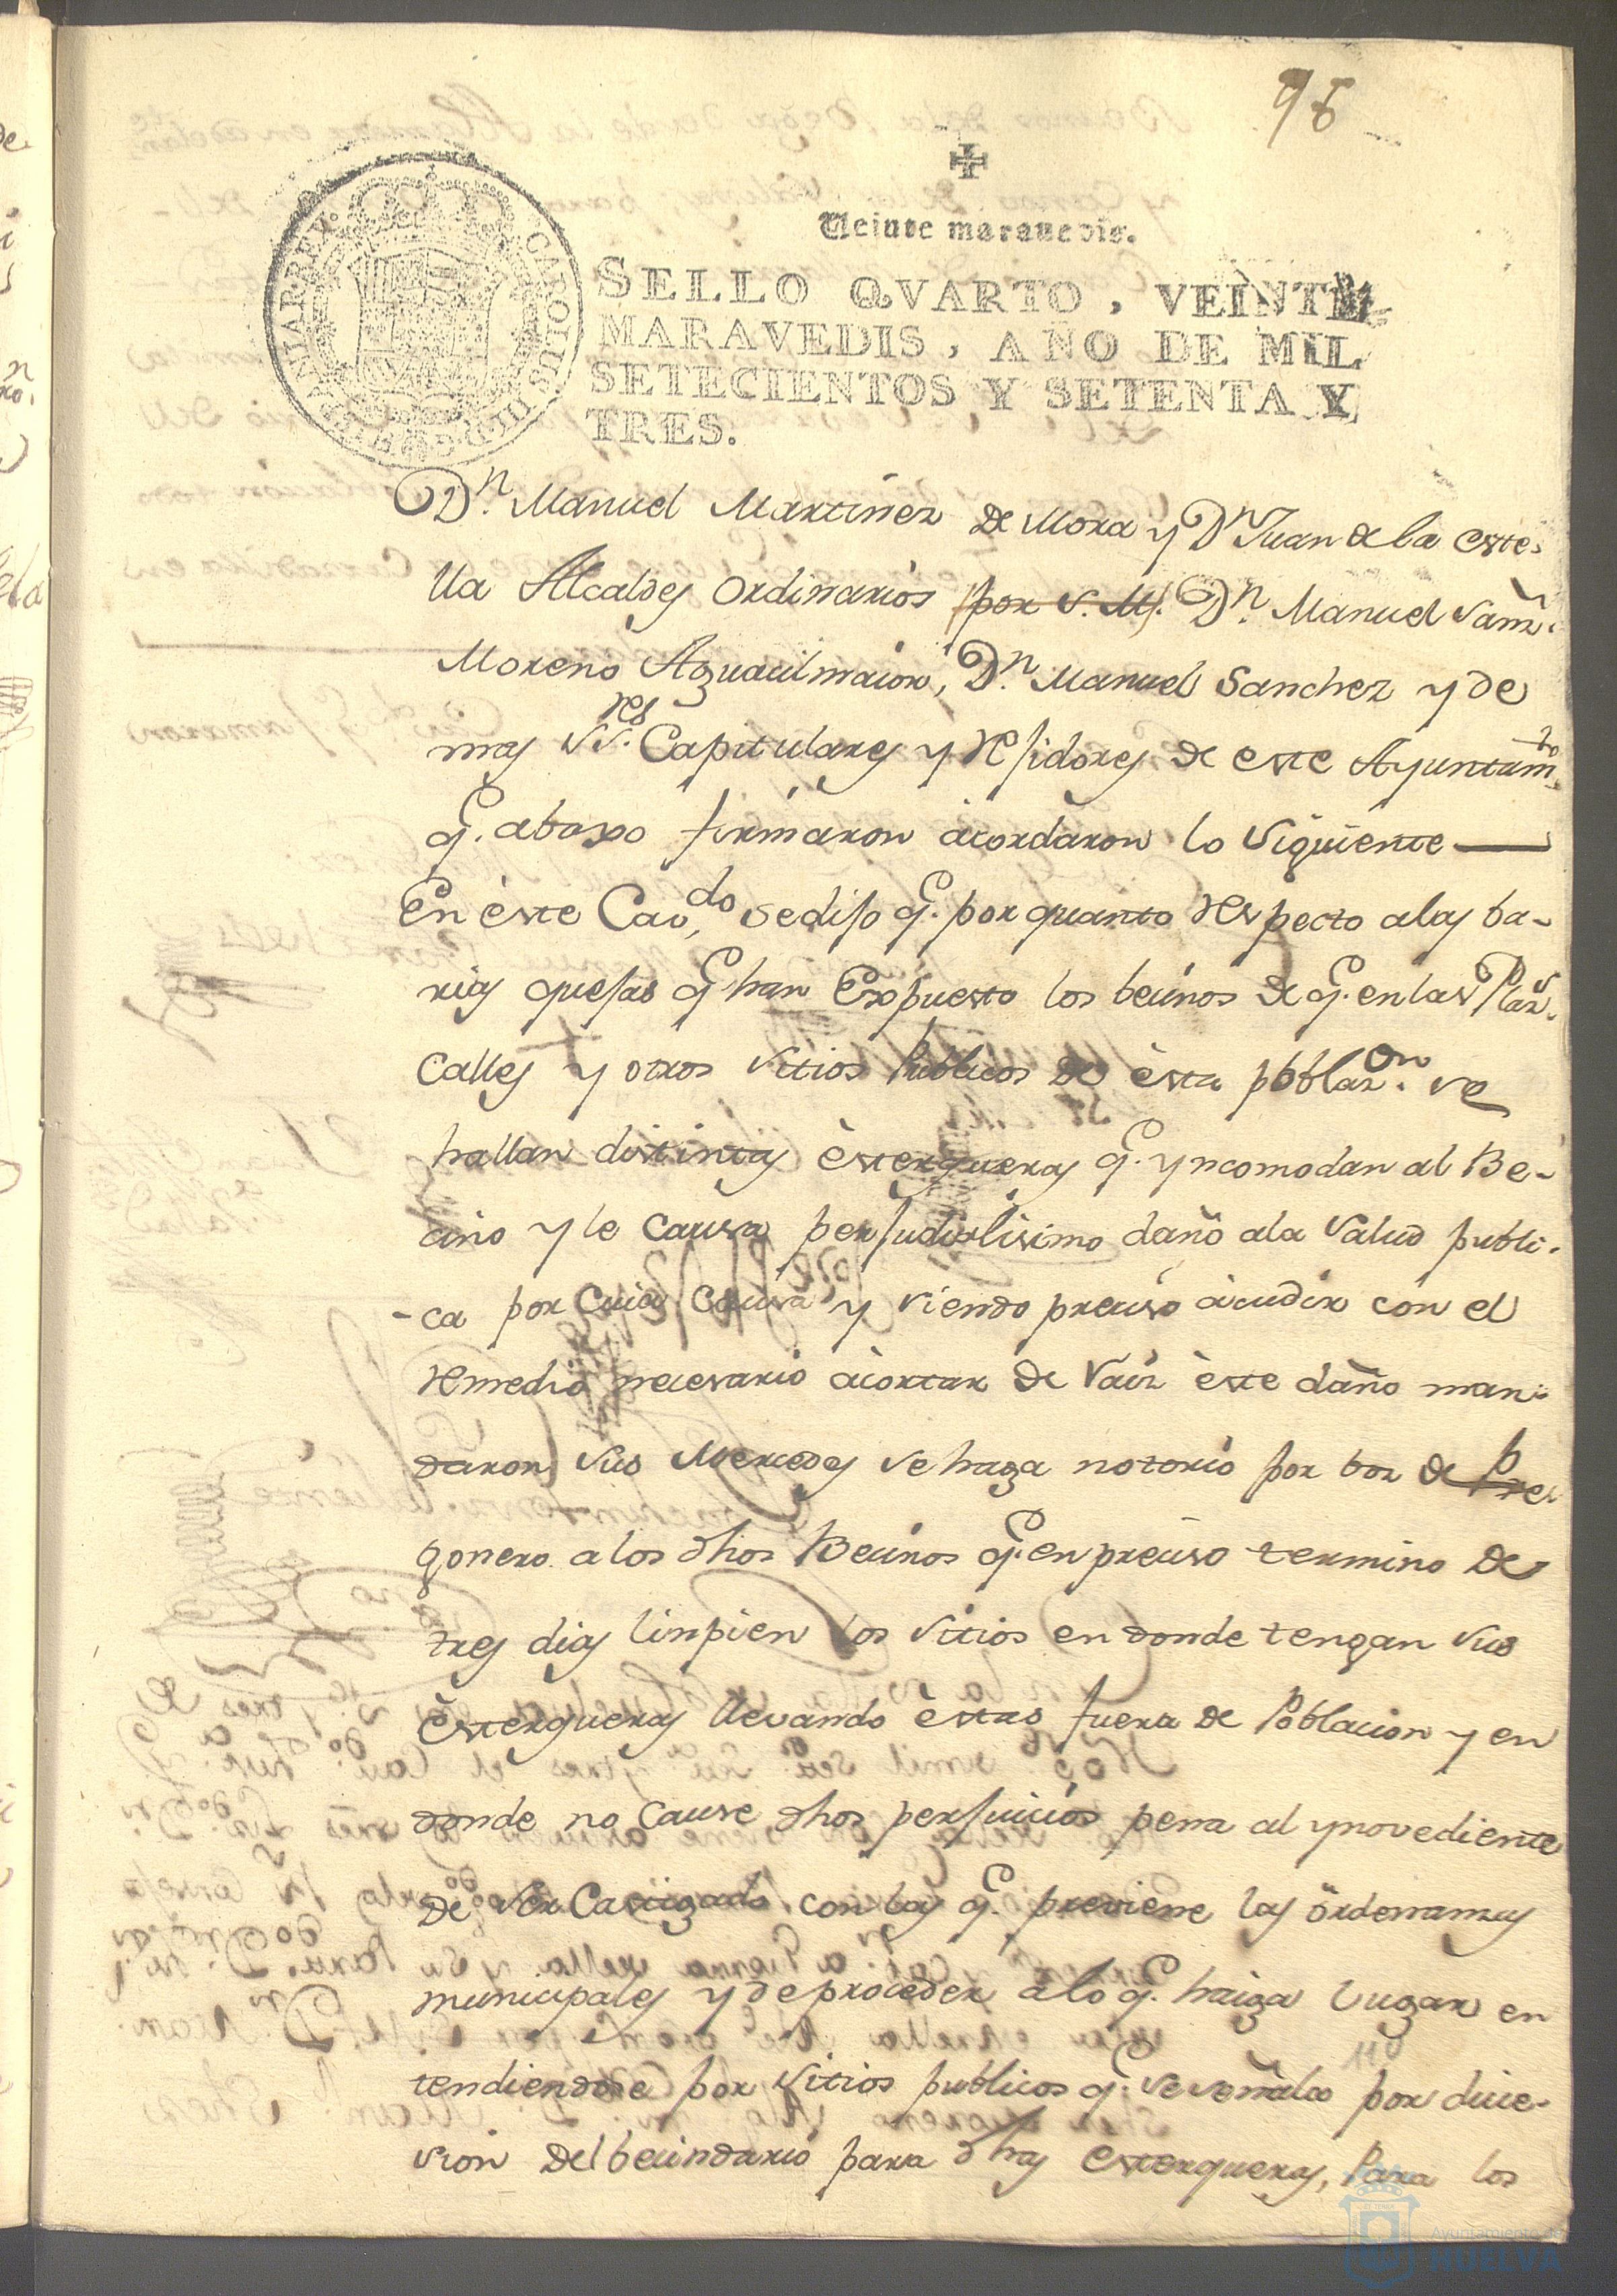 98
Veinte maravedis.
SELLO QVARTO, VEINTE
MARAVEDIS, AÑO DE MIL
SETECIENTOS Y SETENTA Y
TRES.
Dn. Manuel Martinez de Mora y Dn Juan de la este-
lla Alcaldes Ordinarios por S. M. Dn. Manuel Sanz.
Moreno Aguacilmaior, Dn. Manuel Sanchez y de
mas SS.res Capitulares y Rejidores de este Ayuntamto.
q. abaxo firmaron acordaron lo siguiente
En este Cavdo, se dijo q. por quanto respecto a las ba-
rias quejas q han Expuesto los becinos de q. en las Plazs.
Calles y otros sitios Publicos de esta poblazon. se
hallan distintas esterqueras q. yncomodan al Be-
cino y le causa perjudicilisimo daño a la salud publi-
-ca por cuia causa y siendo preciso acudir con el
remedio necesario a cortar de raiz este daño man-
daron sus Mercedes se haga notorio por boz de Pre
gonero a los dhos Becinos q. en preciso termino de
tres dias linpien los sitios en donde tengan sus
esterqueras llevando estas fuera de Poblacion y en
donde no cause dhos perjuicios pena al ynovediente
de ser Castigado con las q. previene las ordenanzas
municipales y de proceder a lo q. haiga lugar en
tendiendose por sitios publicos q. se señala por dice-
sion del becindario para dhas esterqueras, Para los
Ayuntamiento de
HUELVA